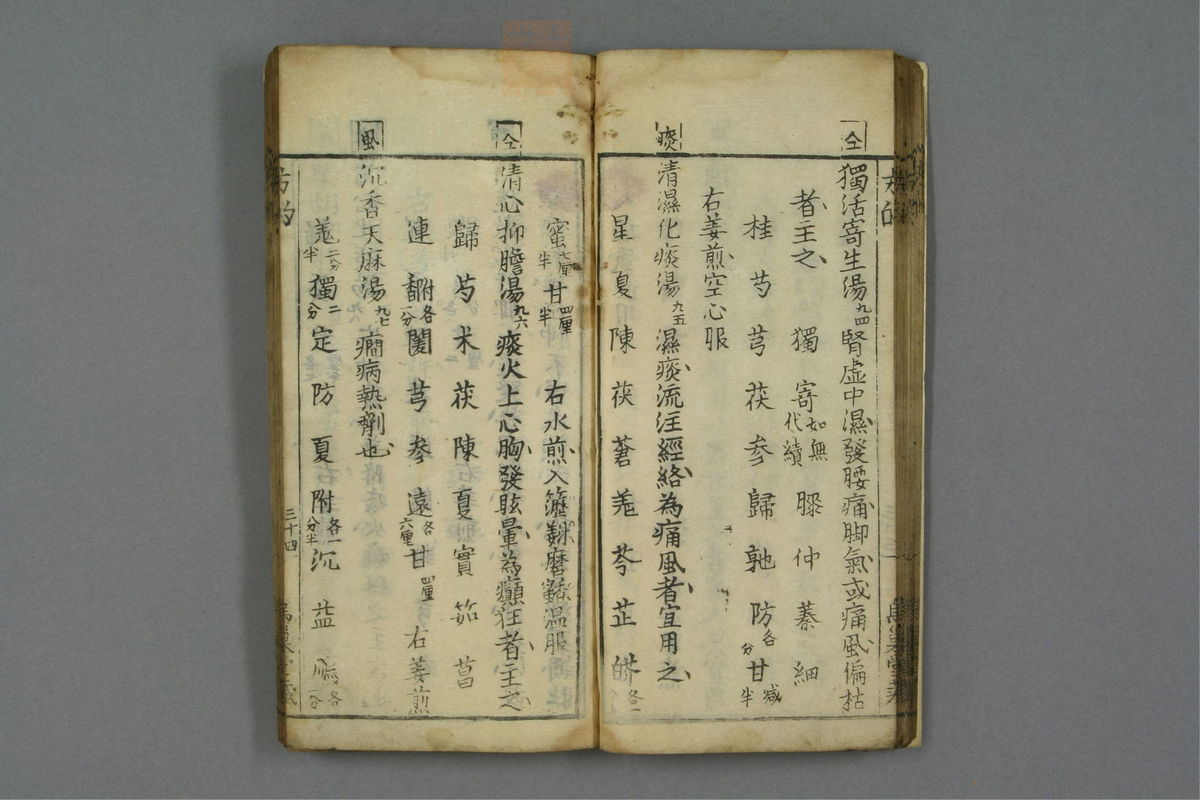 仝
獨活寄生湯九四腎虚中濕發腰痛脚氣或痛風偏枯
者主之 獨 寄如無代續 膝 仲 蓁 細
桂 芍 芎 茯 参 歸 䰟 防各分 甘减半
右姜煎空心服
痰
清濕化痰湯九五 濕痰流注經絡為痛風者宜用之
星 夏 陳 茯 蒼 羌 芩 芷
蜜七厘半 甘四厘半 右水煎入 磨 温服
仝
清心抑膽湯九六 痰火上心胸發眩暈為癲狂者主之
歸 芍 米 茯 陳 夏 實 筎 菖
連 附各分 芎 参 遠各六厘 甘四厘 右姜煎
風
沉香天麻湯九七 癇病熱劑也
羗二分半 獨二分 定 防 夏 附各一分半 沉 益
三十四